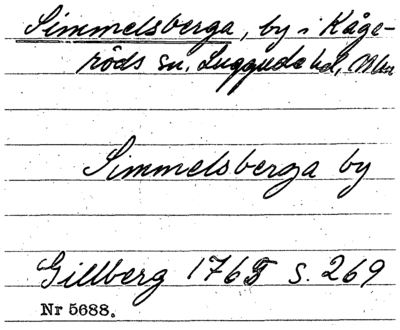 Simmelsberga, by i Kåge-
röds sn. Luggude hd, Mlm
Simmelsberga by
Gillberg 1765 s. 269
Nr 5688.